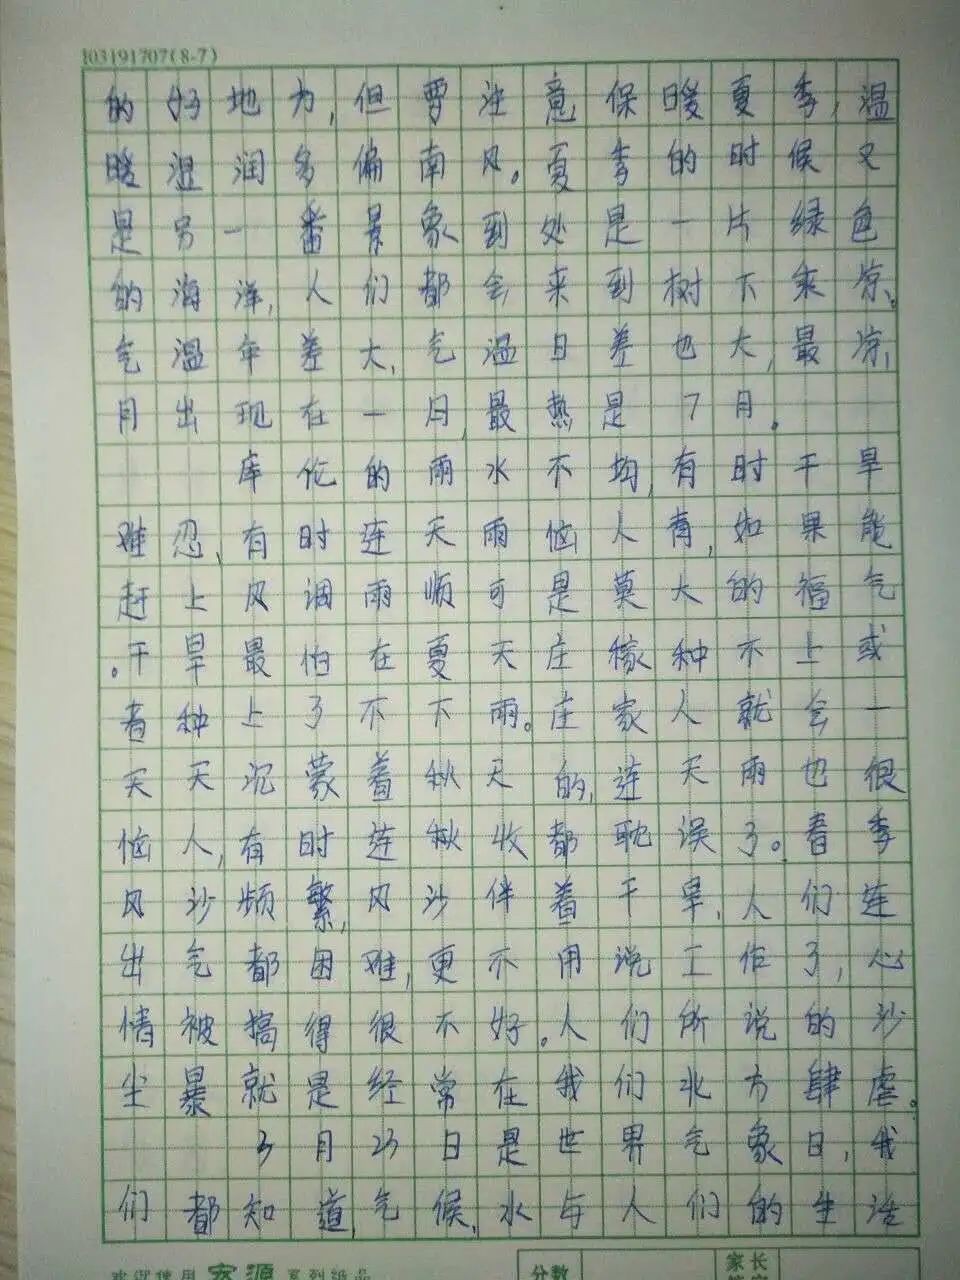 103191707(8-7)
的好地方,但要注意保暖夏季,温
暖湿润多偏南风。夏季的时候又
是另一番景象到处是一片绿色
的海洋,人们都会来到树下乘凉。
气温年差大,气温日差也大,最凉
月出现在一月,最热是7月。
库伦的雨水不均,有时干旱
难忍,有时连天雨恼人着,如果能
赶上风调雨顺可是莫大的福气
。干旱最怕在夏天庄稼种不上或
者种上了不下雨。庄家人就会一
天天沉蒙着秋天的,连天雨也很
恼人,有时连秋收都耽误了。春季
风沙频繁,风沙伴着干旱,人们连
出气都困难,更不用说工作了,心
情被搞得很不好。人们所说的沙
尘暴就是经常在我们北方肆虐。
3月23日是世界气象日,我
们都知道,气候,水与人们的生活
欢迎使用 家源 系列纸品
分数
家长